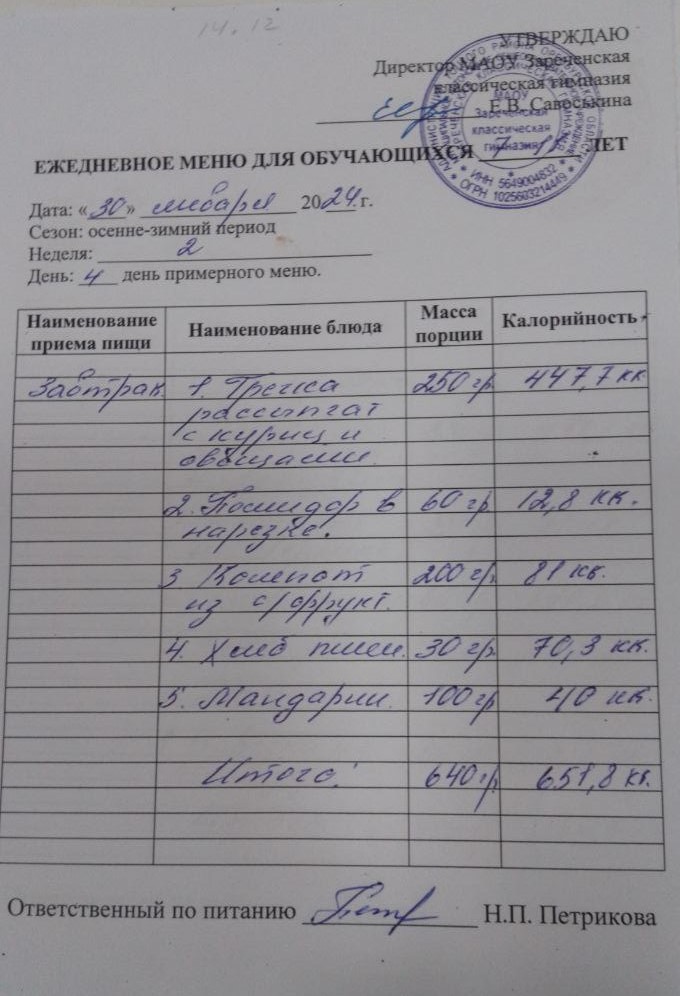 14.12
УТВЕРЖДАЮ
Директор МАОУ Зареченская
классическая гимназия
Е.В. Савоськина
МАОУ
Зареченская
классическая
гимназия
ИНН 5649004832
ОГРН 1025603214449
ЕЖЕДНЕВНОЕ МЕНЮ ДЛЯ ОБУЧАЮЩИХСЯ ЛЕТ
Дата: «30» января 2024 г.
Сезон: осенне-зимний период
Неделя: 2
День: 4 день примерного меню.
Наименование приема пищи Наименование блюда Масса порции Калорийность
Завтрак 1. Гречка 250 гр 447,7 кк
рассыпчат
с куриц и
овощами.
2. Помидор в 60 гр 12,8 кк.
нарезке.
3 Компот 200 гр 81 кк.
из с/фрукт.
4. Хлеб пшен. 30 гр. 70,3 кк.
5. Мандарин. 100 гр 40 кк.
Итого: 640 гр. 651,8 кк.
Ответственный по питанию Н.П. Петрикова